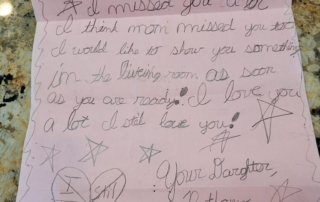 I missed you a lot
I think mom missed you too
I would like to show you something
in the living room as soon
as you are ready! I love you
a lot I still love you!
I still
Your Daughter,